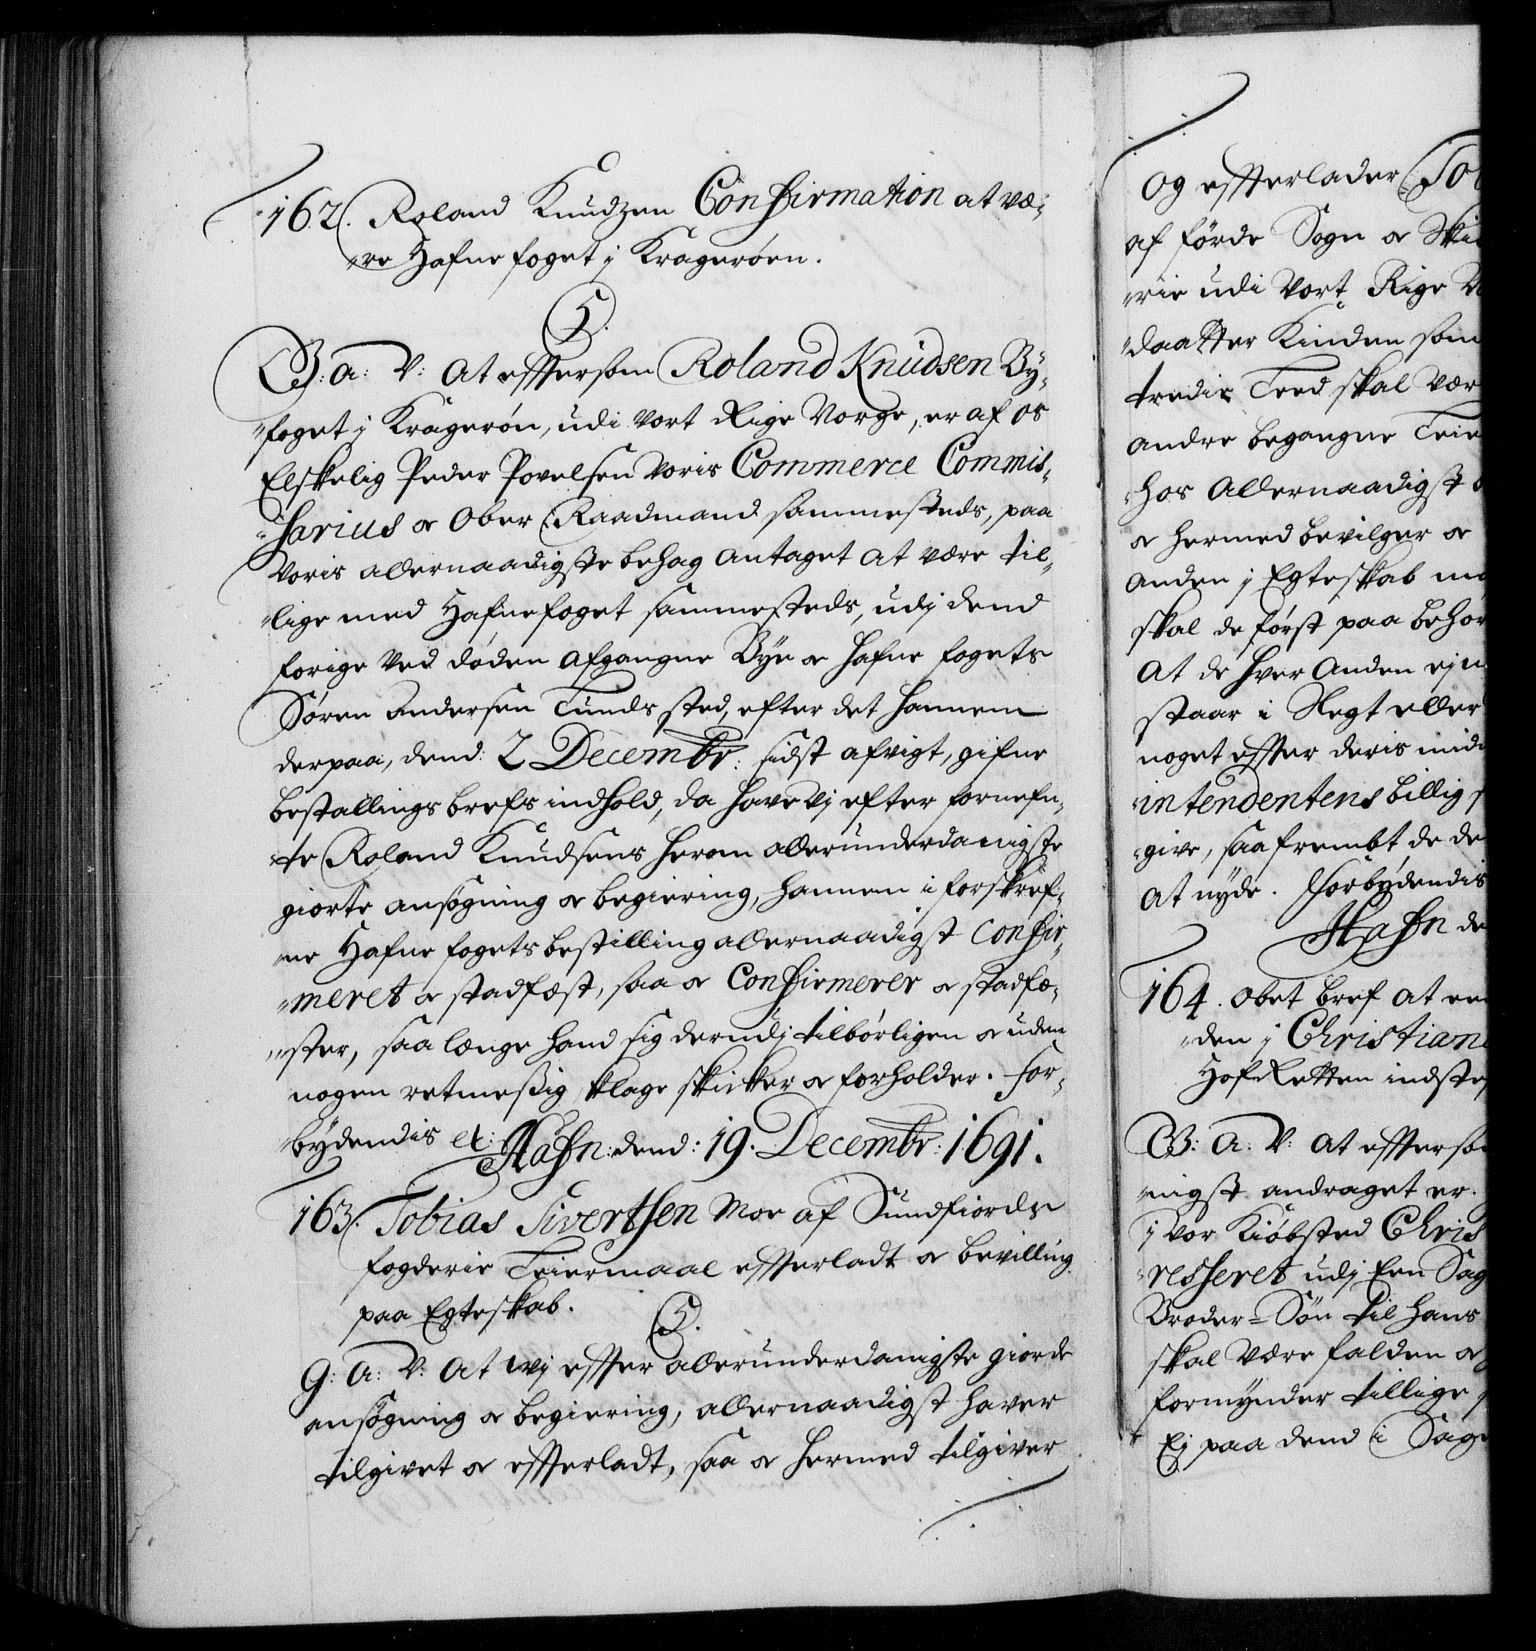 162. Roland Knudzen Confirmation at væ-
re Hafnefoget j Kragerøen.
5.
G: a: V: At effersom Roland Knudsen By-
foget j Kragerøn, udi vort Rige Norge, er af os
Elskelig Peder Povelsen Voris Commerce Commis-
sarius oc Ober Raadmand sammesteds, paa
Voris allernaadigste behag antaget at være til-
lige med Hafnefoget sammesteds, udj dend
forige ved døden afgangne Bye oc Hafne fogets
Søren Andersen Tunds sted, efter det hannem
derpaa, dend 2 Decembr: sidst afvigt, gifne
bestallings brefs indhold, da have Vj efter fornefn-
te Roland Knudsens herom allerunderdanigste
giorte ansøgning oc begiering, hannem i forskref-
ne Hafne fogets bestilling allernaadigst Confir-
meret oc stadfæst, saa oc Confirmerer oc stadfæ-
ster, saa længe hand sig derudj tilbørligen oc uden
nogen retmeßig klage skicker oc forholder. For-
bydendis etc: Hafn: dend: 19. Decembr: 1691.
163. Tobias Sivertsen Moe af Sundfiords
fogderie Leiermaal efferladt oc bevilling
paa Egteskab.
5.
G: A: V: At wj effter allerunderdanigste giorde
ansøgning oc begiering, allernaadigst haver
tilgivet oc efferladt, saa oc hermed tilgiver
og efferlader To
af førde Sogn oc
rie udi Vort Rige N
daatter Kinden som
tredie Leed skal vær
andre begangne Leie
hos Allernaadigst
oc hermed bevilger oc
anden j Egteskab m
skal de først paa behør
At de hver anden ej
staar i Slegt eller
noget effter deris mid
intendentens billig
give, saafrembt de de
at nyde. Forbydendis
Hafn de
164. Obet bref at
den j Christian
HofRetten indste
G: A: V: At efferso
nigst andraget er
j vor Kiøbsted Chris
resseret udj Een Sag
Broder-Søn til hans
skal være falden oc
formynder tillige
Ej paa dend i Sag